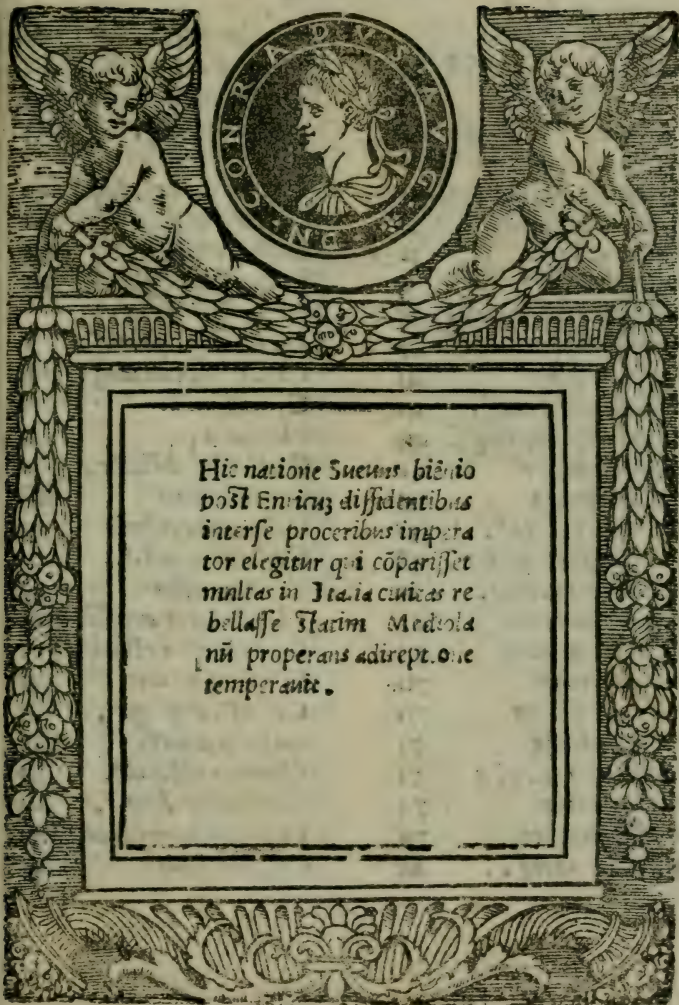 DN · CONRADVS AVG ·
Hic natione Sueuus biēnio
post Enricuʒ dissidentibus
interse proceribus impera
tor elegitur qui cōparisset
multas in Italia ciuitas re
bellasse statim Mediola
nū properans adireptione
temperauit .